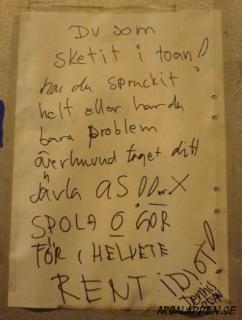 Du som
sketit i toan!
har du spruckit
helt eller har du
bara problem
överhuvud taget ditt
jävla AS
SPOLA O GÖR
FÖR I HELVETE
RENT IDIOT!
ARGALAPPEN.SE